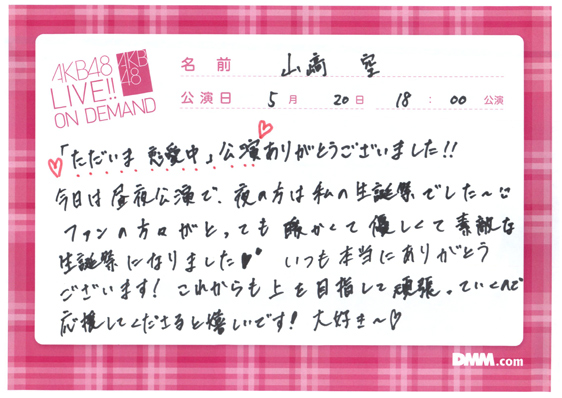 AKB48
LIVE!!
ON DEMAND
AKB
48
名前 山﨑 空
公演日 5月 20日 18:00 公演
「ただいま 恋愛中」公演ありがとうございました!!
今日は昼夜公演で、夜の方は私の生誕祭でした〜
ファンの方々がとっても暖かくて優しくて素敵な
生誕祭になりました♥♥ いつも本当にありがとう
ございます! これからも上を目指して頑張っていくので
応援してくださると嬉しいです! 大好き〜♡
DMM.com